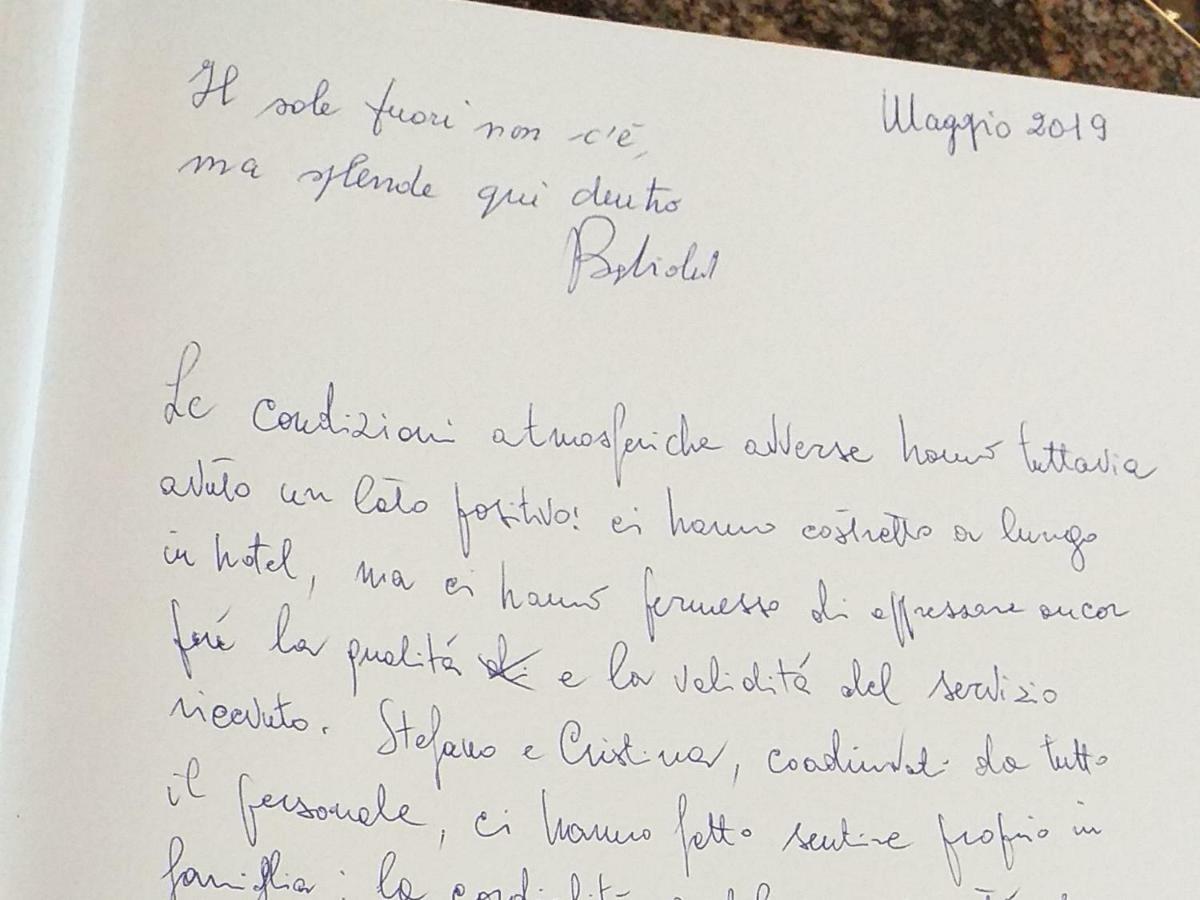 Il sole fuori non c'è,
Maggio 2019
ma splende qui dentro
Le condizioni atmosferiche avverse hanno tuttavia
avuto un lato positivo: ci hanno costretto a lungo
in hotel, ma ci hanno permesso di apprezzare ancor
più la qualitá e la validitá del servizio
ricevuto. Stefano e Cristina, coadiuvati da tutto
il personale, ci hanno fatto sentire proprio in
famiglia: la